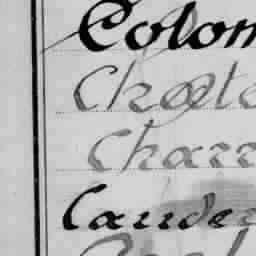 Colom
Chate
Charr
Cauder